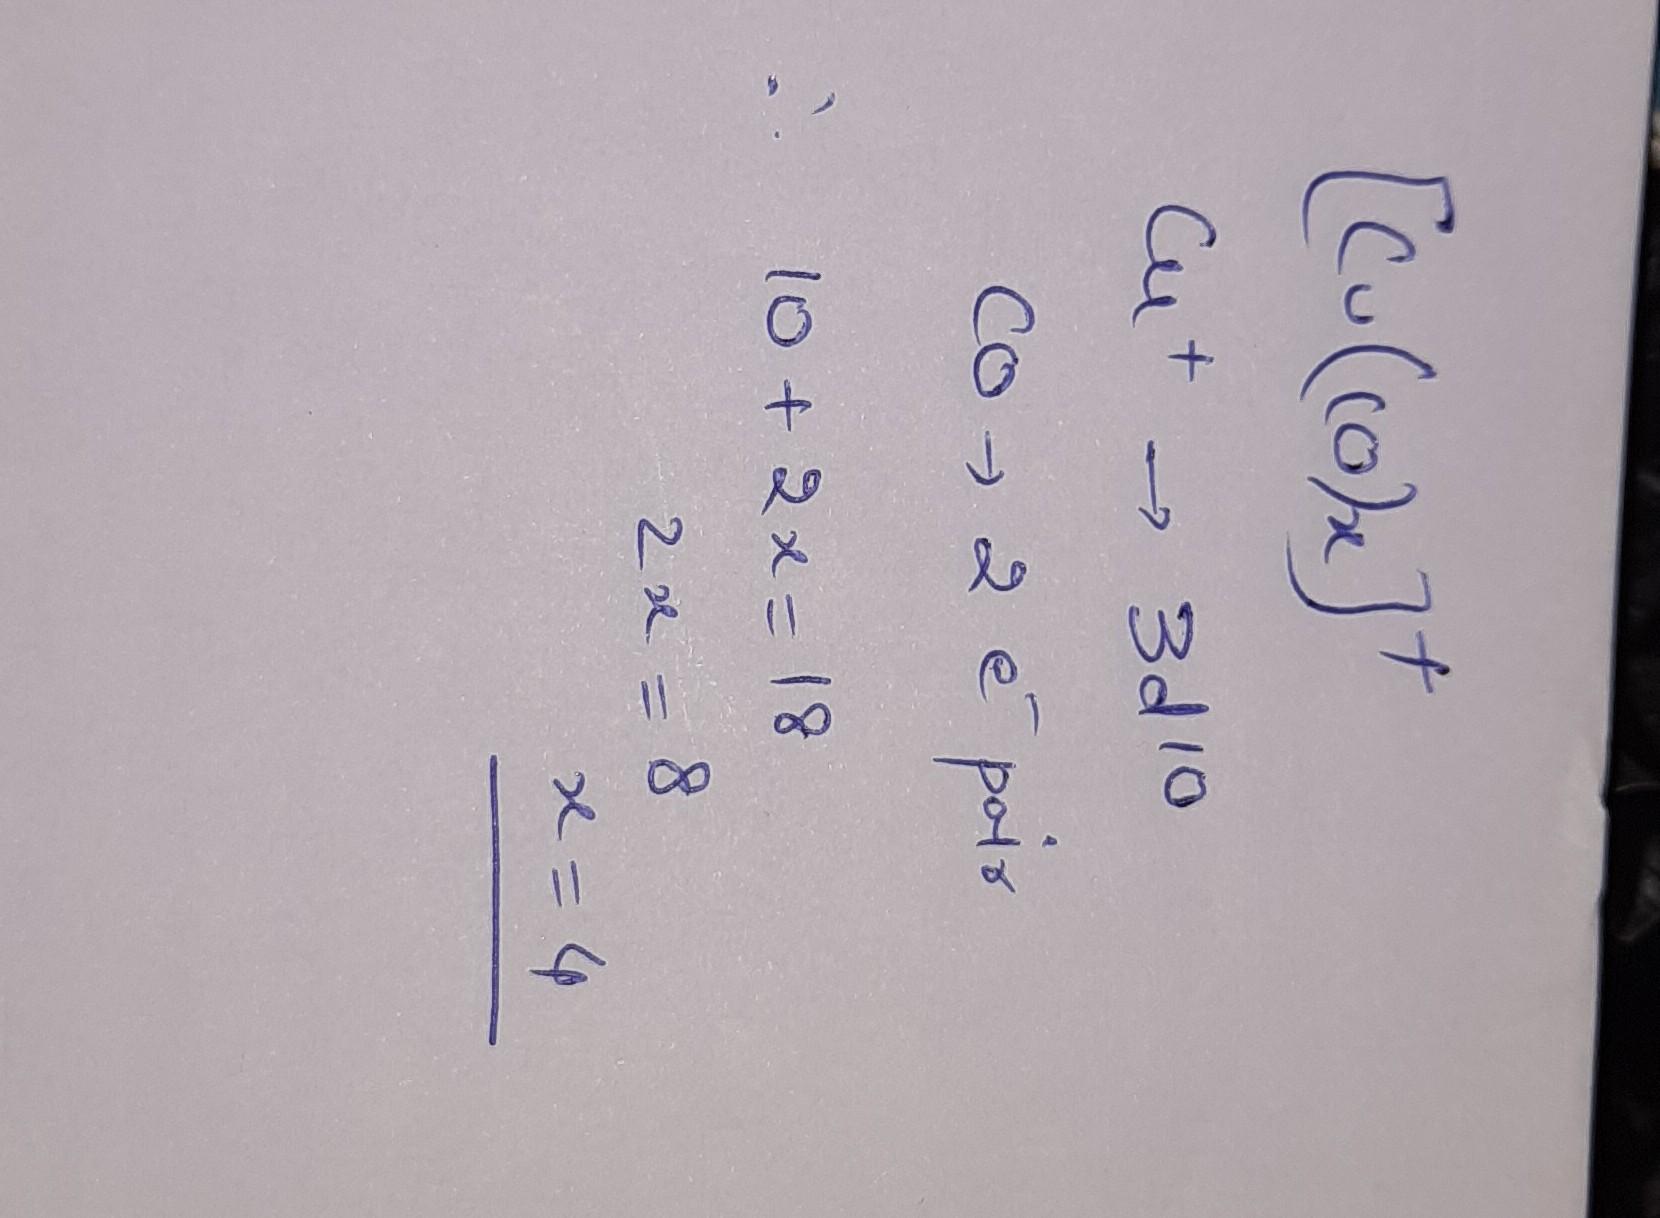 [Cu(CO)x]+
Cu+ → 3d10
CO → 2 e- pair
∴ 10 + 2x = 18
2x = 8
x = 4